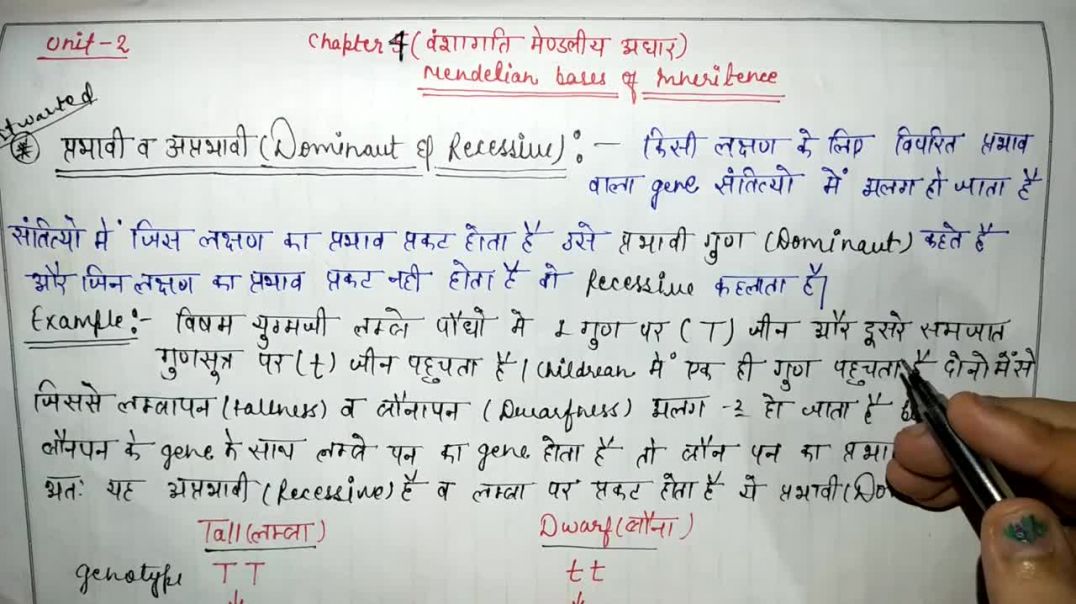 Unit-2
Chapter 4 (वंशागति मेण्डलीय अधार)
Mendelian bases of Inheritence
प्रभावी व अप्रभावी (Dominaut & Recessive) :- किसी लक्षण के लिए विपरित प्रभाव
वाला gene संतित्यो में अलग हो जाता है
संतित्यो में जिस लक्षण का प्रभाव प्रकट होता है उसे प्रभावी गुण (Dominaut) कहते है
और जिन लक्षण का प्रभाव प्रकट नही होता है वो Recessive कहलाता है|
Example:- विषम युग्मजी लम्बे पौधो मे 1 गुण पर (T) जीन और दूसरे समजात
गुणसूत्र पर (t) जीन पहुचता है| Childrean में एक ही गुण पहुचता है दोनो में से
जिससे लम्बापन (tallness) व बौनापन (Dwarfness) अलग -2 हो जाता है
बौनपन के gene के साथ लम्बे पन का gene होता है तो बौन पन का
अतः यह अप्रभावी (Recessive) है व लम्बा पर प्रकट होता है ये प्रभावी
Tall (लम्बा) Dwarf (बौना)
genotype TT tt